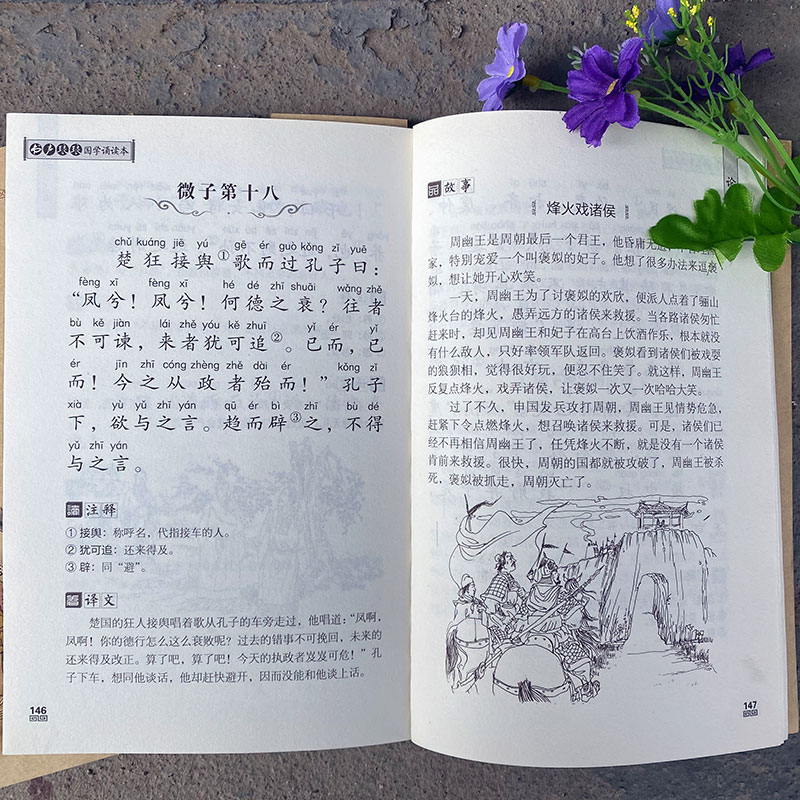 书声琅琅国学诵读本
微子第十八
chǔ kuáng jiē yú gē ér guò kǒng zǐ yuē
楚狂接舆①歌而过孔子曰：
fèng xī fèng xī hé dé zhī shuāi wǎng zhě
“凤兮！凤兮！何德之衰？往者
bù kě jiàn lái zhě yóu kě zhuī yǐ ér yǐ
不可谏，来者犹可追②。已而，已
ér jīn zhī cóng zhèng zhě dài ér kǒng zǐ
而！今之从政者殆而！”孔子
xià yù yǔ zhī yán qū ér bì zhī bù dé
下，欲与之言。趋而辟③之，不得
yǔ zhī yán
与之言。
注释
① 接舆：称呼名，代指接车的人。
② 犹可追：还来得及。
③ 辟：同“避”。
译文
楚国的狂人接舆唱着歌从孔子的车旁走过，他唱道：“凤啊，
凤啊！你的德行怎么这么衰败呢？过去的错事不可挽回，未来的
还来得及改正。算了吧，算了吧！今天的执政者岌岌可危！”孔
子下车，想同他谈话，他却赶快避开，因而没能和他谈上话。
146
故事
烽火戏诸侯
周幽王是周朝最后一个君王，他昏庸无
家，特别宠爱一个叫褒姒的妃子。他想了很多办法来逗褒
姒，想让她开心欢笑。
一天，周幽王为了讨褒姒的欢欣，便派人点着了骊山
烽火台的烽火，愚弄远方的诸侯来救援。当各路诸侯匆忙
赶来时，却见周幽王和妃子在高台上饮酒作乐，根本就没
有什么敌人，只好率领军队返回。褒姒看到诸侯们被戏耍
的狼狈相，觉得很好玩，便忍不住笑了。就这样，周幽王
反复点烽火，戏弄诸侯，让褒姒一次又一次哈哈大笑。
过了不久，申国发兵攻打周朝，周幽王见情势危急，
赶紧下令点燃烽火，想召唤诸侯来救援。可是，诸侯们已
经不再相信周幽王了，任凭烽火不断，就是没有一个诸侯
肯前来救援。很快，周朝的国都就被攻破了，周幽王被杀
死，褒姒被抓走，周朝灭亡了。
147